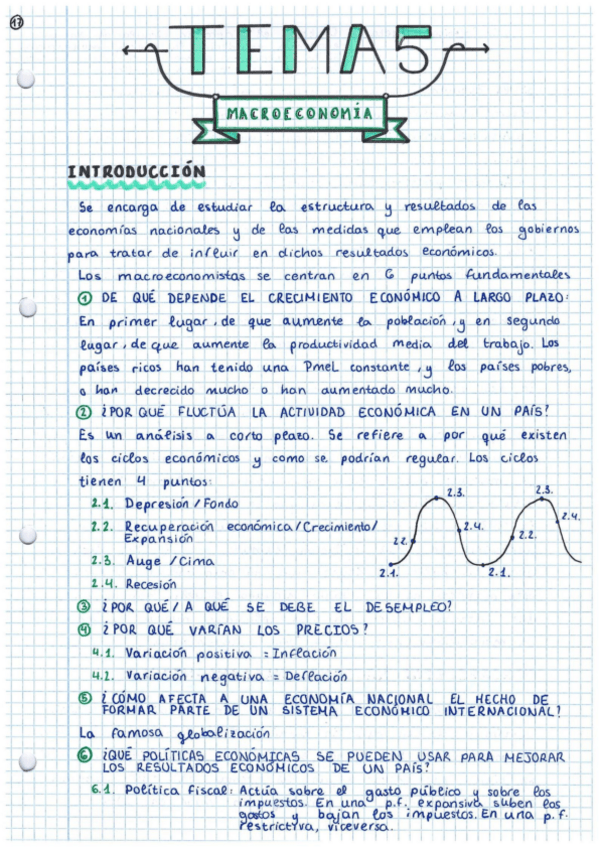 17
TEMA 5
MACROECONOMÍA
INTRODUCCIÓN
Se encarga de estudiar la estructura y resultados de las
economías nacionales y de las medidas que emplean los gobiernos
para tratar de influir en dichos resultados económicos.
Los macroeconomistas se centran en 6 puntos fundamentales
① DE QUÉ DEPENDE EL CRECIMIENTO ECONÓMICO A LARGO PLAZO:
En primer lugar, de que aumente la población, y en segundo
lugar, de que aumente la productividad media del trabajo. Los
países ricos han tenido una PmeL constante, y los países pobres,
o han decrecido mucho o han aumentado mucho.
② ¿POR QUÉ FLUCTÚA LA ACTIVIDAD ECONÓMICA EN UN PAÍS?
Es un análisis a corto plazo. Se refiere a por qué existen
los ciclos económicos y como se podrían regular. Los ciclos
tienen 4 puntos:
2.1. Depresión / Fondo
2.2. Recuperación económica/Crecimiento/
Expansión
2.3. Auge / Cima
2.4. Recesión
2.1.
2.2.
2.3.
2.4.
2.1.
2.2.
2.3.
2.4.
③ ¿POR QUÉ / A QUÉ SE DEBE EL DESEMPLEO?
④ ¿POR QUÉ VARÍAN LOS PRECIOS?
4.1. Variación positiva = Inflación
4.2. Variación negativa = Deflación
⑤ ¿CÓMO AFECTA A UNA ECONOMÍA NACIONAL EL HECHO DE
FORMAR PARTE DE UN SISTEMA ECONÓMICO INTERNACIONAL?
La famosa globalización
⑥ ¿QUÉ POLÍTICAS ECONÓMICAS SE PUEDEN USAR PARA MEJORAR
LOS RESULTADOS ECONÓMICOS DE UN PAÍS?
6.1. Política fiscal: Actúa sobre el gasto público y sobre los
impuestos. En una p.f. expansiva suben los
gastos y bajan los impuestos. En una p.f.
restrictiva, viceversa.